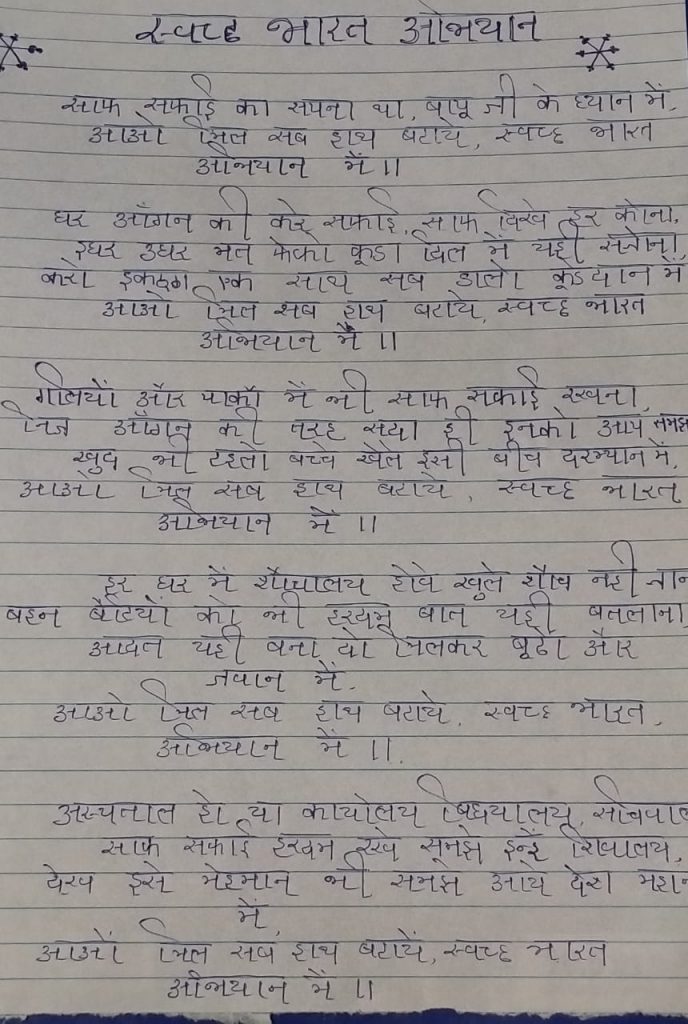 स्वच्छ भारत अभियान
साफ सफाई का सपना था, बापू जी के ध्यान में,
आओ मिल सब हाथ बटाये, स्वच्छ भारत
अभियान में ॥
घर आँगन की करे सफाई, साफ दिखे हर कोना,
इधर उधर मत फेको कूडा दिल में यही
करो इकट्ठा एक साथ सब डालो कूडदान में,
आओ मिल सब हाथ बटाये, स्वच्छ भारत
अभियान में ॥
गलियों और पार्को में भी साफ सफाई रखना,
निज आँगन की तरह सदा ही इनको आप समझ
खुद भी टहलो बच्चे खेले इसी बीच दरम्यान में,
आओ मिल सब हाथ बटाये, स्वच्छ भारत
अभियान में ॥
हर घर में शौचालय होवे खुले शौच नही जान
बहन बेटियों को भी हरदम बात यही बतलाना,
आदत यही बना दो मिलकर बूढो और
जवान में,
आओ मिल सब हाथ बटाये, स्वच्छ भारत,
अभियान में ॥
अस्पताल हो या कार्यालय विधयालय, सचिवाल
साफ सफाई हरदम रखे समझे इन्हें शिवालय,
देख इसे मेहमान भी समझे आये देश महान
में,
आओं मिल सब हाथ बटायें, स्वच्छ भारत
अभियान में ॥